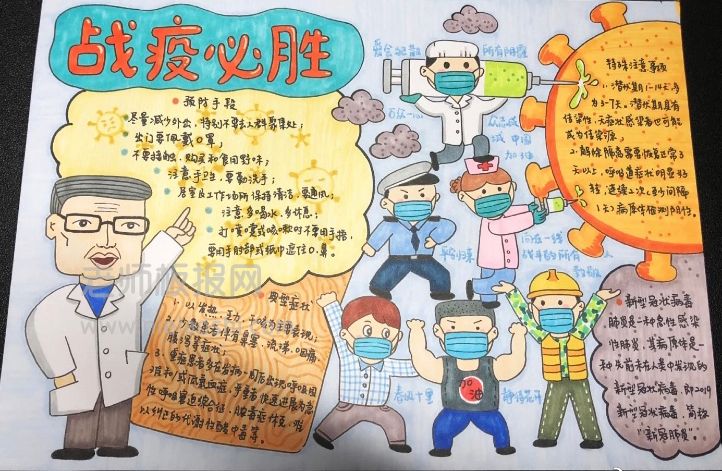 战疫必胜
预防手段
尽量减少外出，特别不要去人群聚集处；
出门要佩戴口罩；
不要接触，购买和食用野味；
注意手卫，要勤洗手；
居室及工作场所保持清洁，要通风；
注意多喝水，多休息；
打喷嚏或咳嗽时不要用手捂，
要用手肘部或纸巾遮住口鼻。
典型症状
1、以发热、乏力、干咳为主要表现；
2、少数患者伴有鼻塞、流涕、咽痛、
腹泻等症状；
3、重症患者多在发病一周后出现呼吸困
难和/或低氧血症，严重者快速进展为急
性呼吸窘迫综合征、脓毒症休克、难
以纠正的代谢性酸中毒等。
雾会驱散
所有阴霾
万众一心
众志成
城 中国
加油
平安归来
向在一线
战斗的所有
人
致敬
春风十里
静待花开
加油
特殊注意事项
1、潜伏期1-14天，多
为3-7天。潜伏期具有
传染性，无症状感染者也可能
成为传染源。
2、解除隔离需要体温正常3
天以上，呼吸道症状明显好
转，连续2次，至少间隔
1天）病原体检测阴性。
新型冠状病毒
肺炎是一种急性感染
性肺炎，其病原体是一
种先前未在人类中发现的
新型冠状病毒，即2019
新型冠状病毒，简称
“新冠肺炎”。
老师板报网